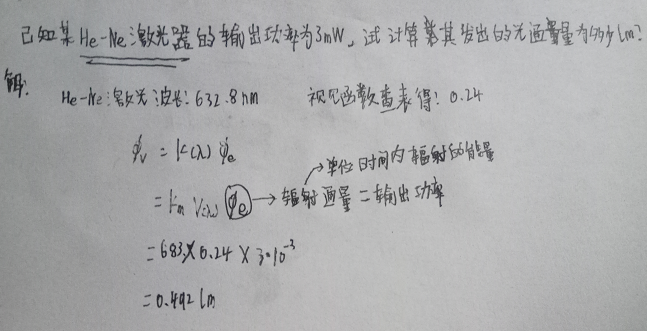 已知某He-Ne激光器的输出功率为3mW,试计算其发出的光通量为多少lm?
解:
He-Ne激光波长:632.8nm 视见函数查表得:0.24
ϕv = K(λ) ϕe
→单位时间内辐射的能量
= Km V(λ) ϕe → 辐射通量=输出功率
=683×0.24×3·10⁻³
=0.492lm